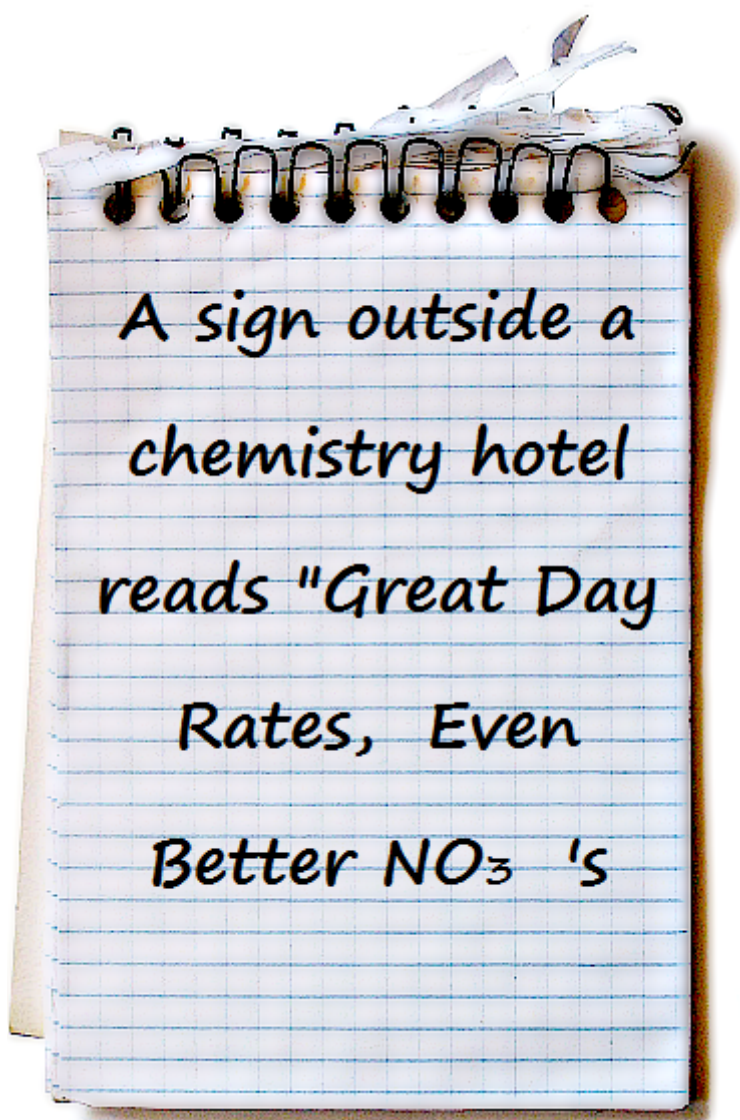 A sign outside a
chemistry hotel
reads "Great Day
Rates, Even
Better NO₃ 's